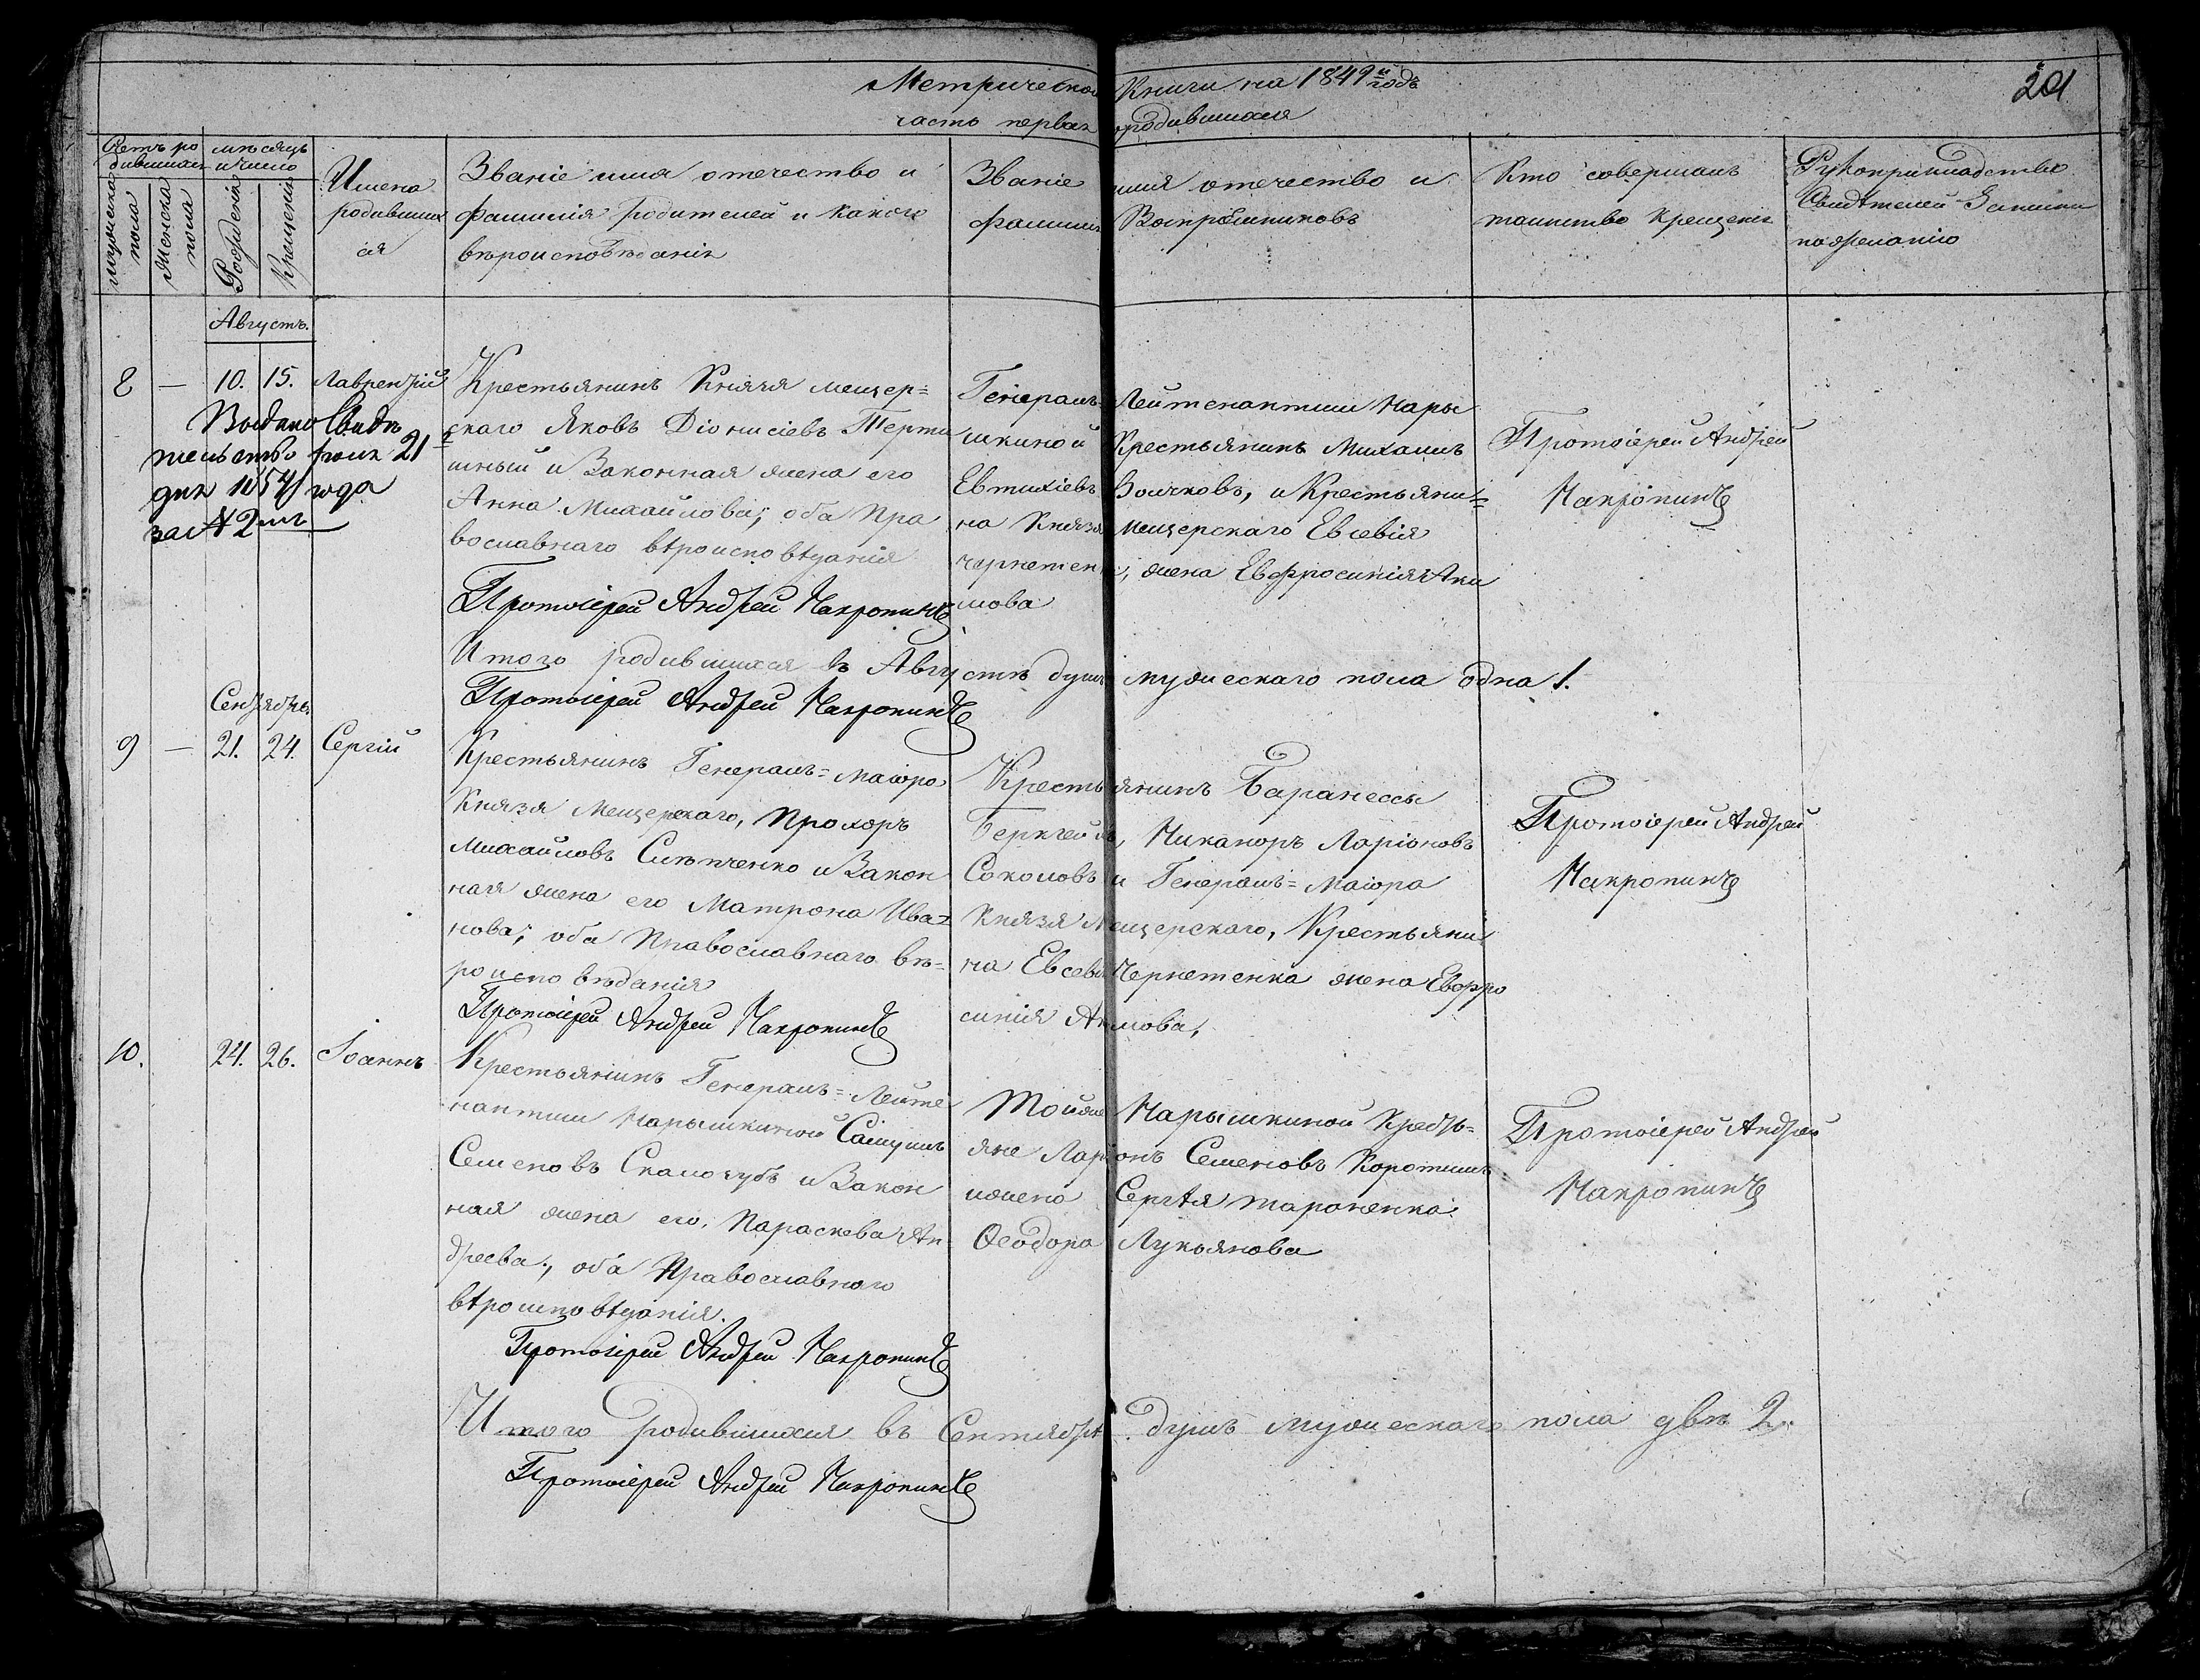 Метрической Книги на 1849й годъ
201
часть первая о родившихся
Счетъ ро
дившихся
мужеска
пола
женска
пола
мѣсяцъ
и число
Рожденія
Крещенія
Имена
родивших
ся
Званіе имя отечество и
фамилія родителей и какого
вѣроисповѣданія
Званіе имя отечество и
фамилія Воспріемниковъ
Кто совершалъ
таинство крещенія
Рукоприкладство
Свидѣтелей Записи
по желанію
Августъ.
8 — 10. 15. Лаврентій
Выдано Свидѣ
тельство 21
дня 1857 года
за №2мъ
Крестьянинъ Князя Мещер=
скаго Яковъ Діонисіевъ Терти
шный и Законная жена его
Анна Михайлова; оба Пра
вославнаго вѣроисповѣданія
Протоіерей Андрей Макропинъ
Генералъ=Лейтенантши Нары
шкиной Крестьянинъ Михаилъ
Евтихіевъ Волчковъ, и Крестьяни=
на Князя Мещерскаго Евсевія
Чернетенка, жена Евфросинія Аки
мова
Протоіерей Андрей
Макропинъ
Итого родившихся въ Августѣ душъ мужескаго пола одна 1.
Протоіерей Андрей Макропинъ
Сентябрь
9 — 21. 24. Сергій
Крестьянинъ Генералъ=Маіора
Князя Мещерскаго, Прохоръ
Михайловъ Слѣпченко и Закон
ная жена его Матрона Ива=
нова; оба Православнаго вѣ=
роисповѣданія
Протоіерей Андрей Макропинъ
Крестьянинъ Баранессы
Никаноръ Ларіоновъ
Соколовъ и Генералъ=Маіора
Князя Мещерскаго, Крестьяни
на Евсевія Чернетенка жена Евфро
синія Акимова,
Протоіерей Андрей
Макропинъ
10. 24. 26. Іоаннъ
Крестьянинъ Генералъ=Лейте
нантши Нарышкиной Самуилъ
Семеновъ Скалозубъ и Закон
ная жена его, Параскева Ан
дреева; оба Православнаго
вѣроисповѣданія.
Протоіерей Андрей Макропинъ
Тойже Нарышкиной Кресть=
яне Ларіонъ Семеновъ Коротишъ
и жена Сергѣя Тароненка
Ѳеодора Лукьянова
Протоіерей Андрей
Макропинъ
Итого родившихся въ Сентябрѣ душъ мужескаго пола двѣ 2.
Протоіерей Андрей Макропинъ